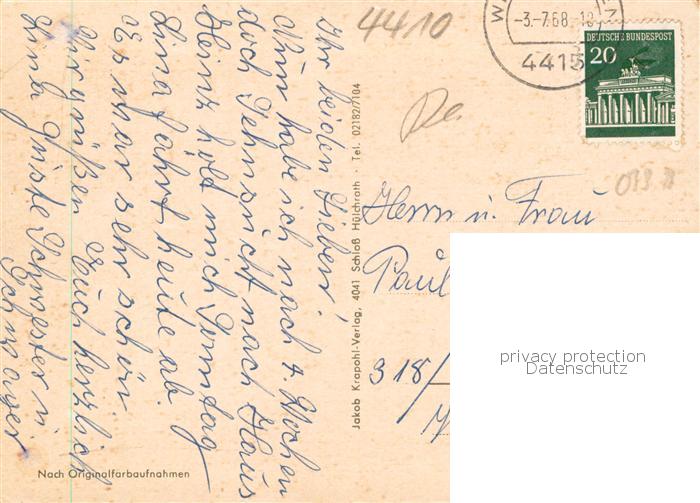 Ihr beiden Lieben!
Nun habe ich nach 4. Wochen
doch Sehnsucht nach Haus
Heinz holt mich Sonntag
Lina fährt heute ab.
Es war sehr schön
Wir grüßen Euch herzlich
Lina Schwester u.
Schwager
Nach Originalfarbaufnahmen
Jakob Krapohl-Verlag, 4041 Schloß Hülchroth · Tel. 02182/7104
4410
-3.-7.68.-18
4415
DEUTSCHE BUNDESPOST
20
Herrn u. Frau
Paul
318/
privacy protection
Datenschutz